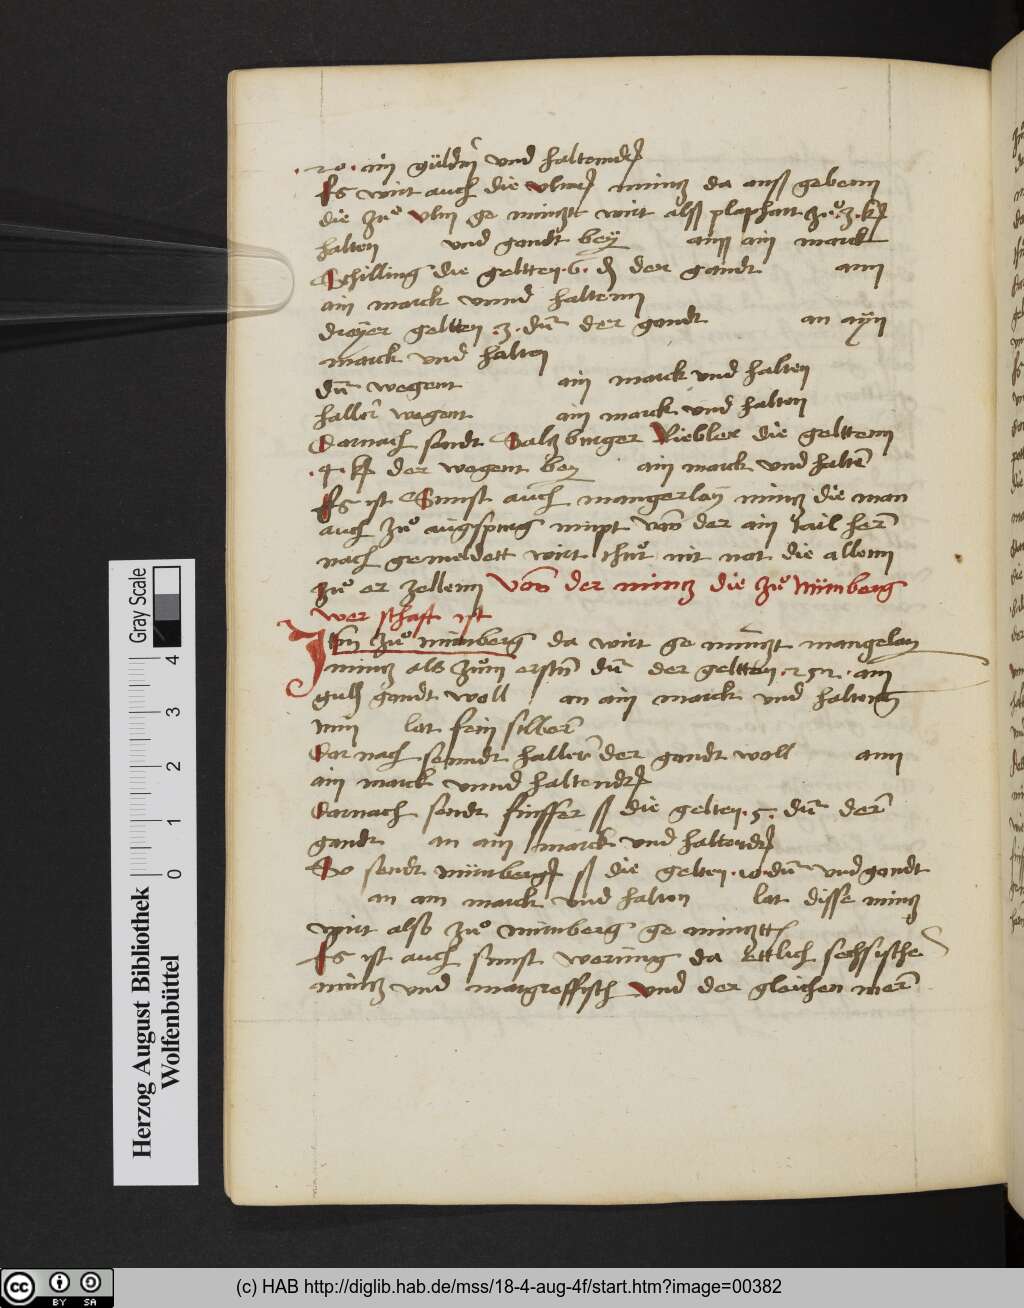 ·20· ain güldin̄ und haltend
Es wirt auch die ulmer mintz da auß gebenn
die zuͦ ulm ge mintzt wirt alß plaphart zuͦ ·3· kr
halten und gandt bey ainn ain marck
Schilling die geltten ·6· ₰ der gandt ann
ain marck vnnd haltenn
dreyer geltten ·3· dn̄ der gandt an ayn
marck und halten
dn̄ wegent ain marck und halten
haller wegent ain marck und halten
Darnach sendt Saltzburger Riebler die gelttenn
·4· kr der wegent bey ain marck und haltn̄
Es ist Sunst auch mangerlay mintz die man
auch zuͦ augspurg nimpt von der ain tail her
nach gemeldett wirt thuͦt nit not die allenn
zuͦ er zellenn Von der mintz die zuͦ Nürnberg
wer schaft ist
Itm̄ zuͦ nürnberg da wirt ge müntzt mangelay
mintz als zum erstn̄ dn̄ der geltten ·252· ain
guld gandt woll an ain marck und haltenn
nun lot fein silber
Dar nach senndt haller der gandt woll ann
ain marck vnnd haltend
Darnach sendt finffer ß die gelten ·5· dn̄ der
gandt an ain marck und haltend
So sendt nürnberg ß die gelten ·10· dn̄ und gandt
an ain marck und halten lot disse mintz
wirt also zuͦ nürnberg ge mintztt
Es ist auch sunst werung da ettlich sechsische
mintz und margreffisch und der gleichen mer
Herzog August Bibliothek
Wolfenbüttel
Gray Scale
0 1 2 3 4
cc BY SA
(c) HAB http://diglib.hab.de/mss/18-4-aug-4f/start.htm?image=00382